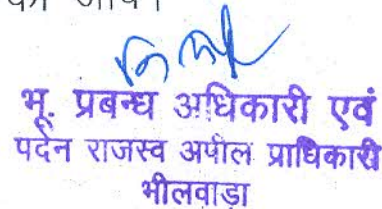 की जावे।
भू. प्रबन्ध अधिकारी एवं
पदेन राजस्व अपील प्राधिकारी
भीलवाड़ा